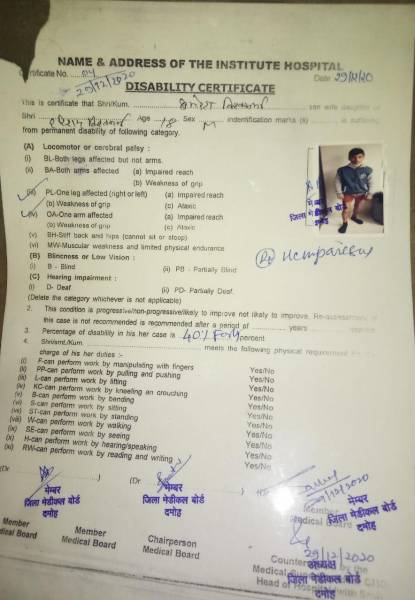 NAME & ADDRESS OF THE INSTITUTE HOSPITAL
Certificate No. 04 29/12/2020 Date 29/12/20
DISABILITY CERTIFICATE
This is certificate that Shri/Kum. son wife daughter of
Shri Age 18 Sex M indentification marks (s) is suffering
from permanent disability of following category.
(A) Locomotor or cerebral palsy :
(i) BL-Both legs affected but not arms.
(ii) BA-Both arms affected (a) Impaired reach
(b) Weakness of grip
(iii) PL-One leg affected (right or left) (a) Impaired reach
(b) Weakness of grip (c) Ataxic
(iv) OA-One arm affected (a) Impaired reach
(b) Weakness of grip (c) Ataxic
(v) BH-Stiff back and hips (cannot sit or stoop)
(vi) MW-Muscular weakness and limited physical endurance
(B) Blincness or Low Vision :
(i) B - Blind (ii) PB - Partially Blind
(C) Hearing impairment :
(i) D- Deaf (ii) PD- Partially Deaf.
(Delete the category whichever is not applicable)
मेम्बर
जिला मेडीकल बोर्ड
दमोह
2. This condition is progressive/non-progressive/likely to improve not likely to improve. Re-assessment of
this case is not recommended is recommended after a period of years
3. Percentage of disability in his her case is 40% Forty percent
4. Shri/smt./Kum. meets the following physical requirement
charge of his her duties :-
(i) F-can perform work by manipulating with fingers Yes/No
(ii) PP-can perform work by pulling and pushing Yes/No
(iii) L-can perform work by lifting Yes/No
(iv) KC-can perform work by kneeling an crouching Yes/No
(v) B-can perform work by bending Yes/No
(vi) S-can perform work by sitting Yes/No
(vii) ST-can perform work by standing Yes/No
(viii) W-can perform work by walking Yes/No
(ix) SE-can perform work by seeing Yes/No
(x) H-can perform work by hearing/speaking Yes/No
(xi) RW-can perform work by reading and writing Yes/No
(Dr (Dr
29/12/2020
मेम्बर मेम्बर मेम्बर
जिला मेडीकल बोर्ड जिला मेडीकल बोर्ड जिला मेडीकल बोर्ड
दमोह दमोह दमोह
Member Member Chairperson Member
Medical Board Medical Board Medical Board Medical Board
29/12/2020
अध्यक्ष
जिला मेडीकल बोर्ड
दमोह
Medical by the
Head of Hospital with